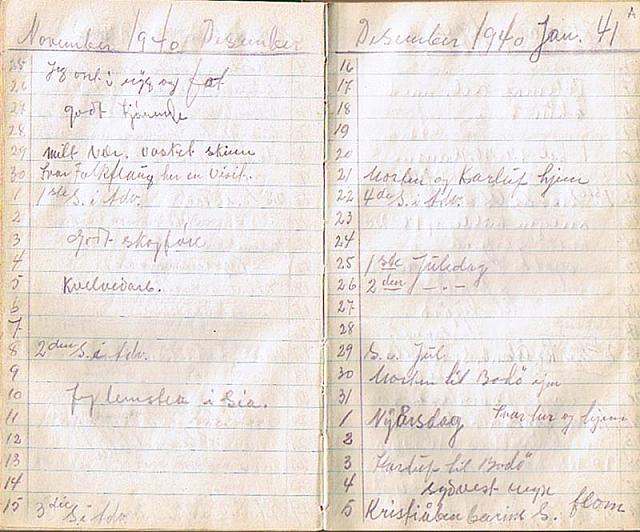 November 1940 Desember
25 Jeg ont i ryg og fot
26
27 godt kjørende
28
29 milt vær. vasket skinn
30 her en Visit.
1 1ste S. i Adv.
2
3 godt skogføre
4
5 Kvelvedarb.
6
7
8 2den S. i Adv.
9
10 i Lia.
11
12
13
14
15 3die S. i Adv.
Desember 1940 Jan. 41
16
17
18
19
20
21 Morten og Karluf hjem
22 4de S. i Adv.
23
24
25 1ste Juledag
26 2den – „ –
27
28
29 S. e. Jul
30 Morten til Bodö
31
1 Nyårsdag Ivar her og hjem
2
3 Karluf til Bodö
4 sydvest
5 S. flom